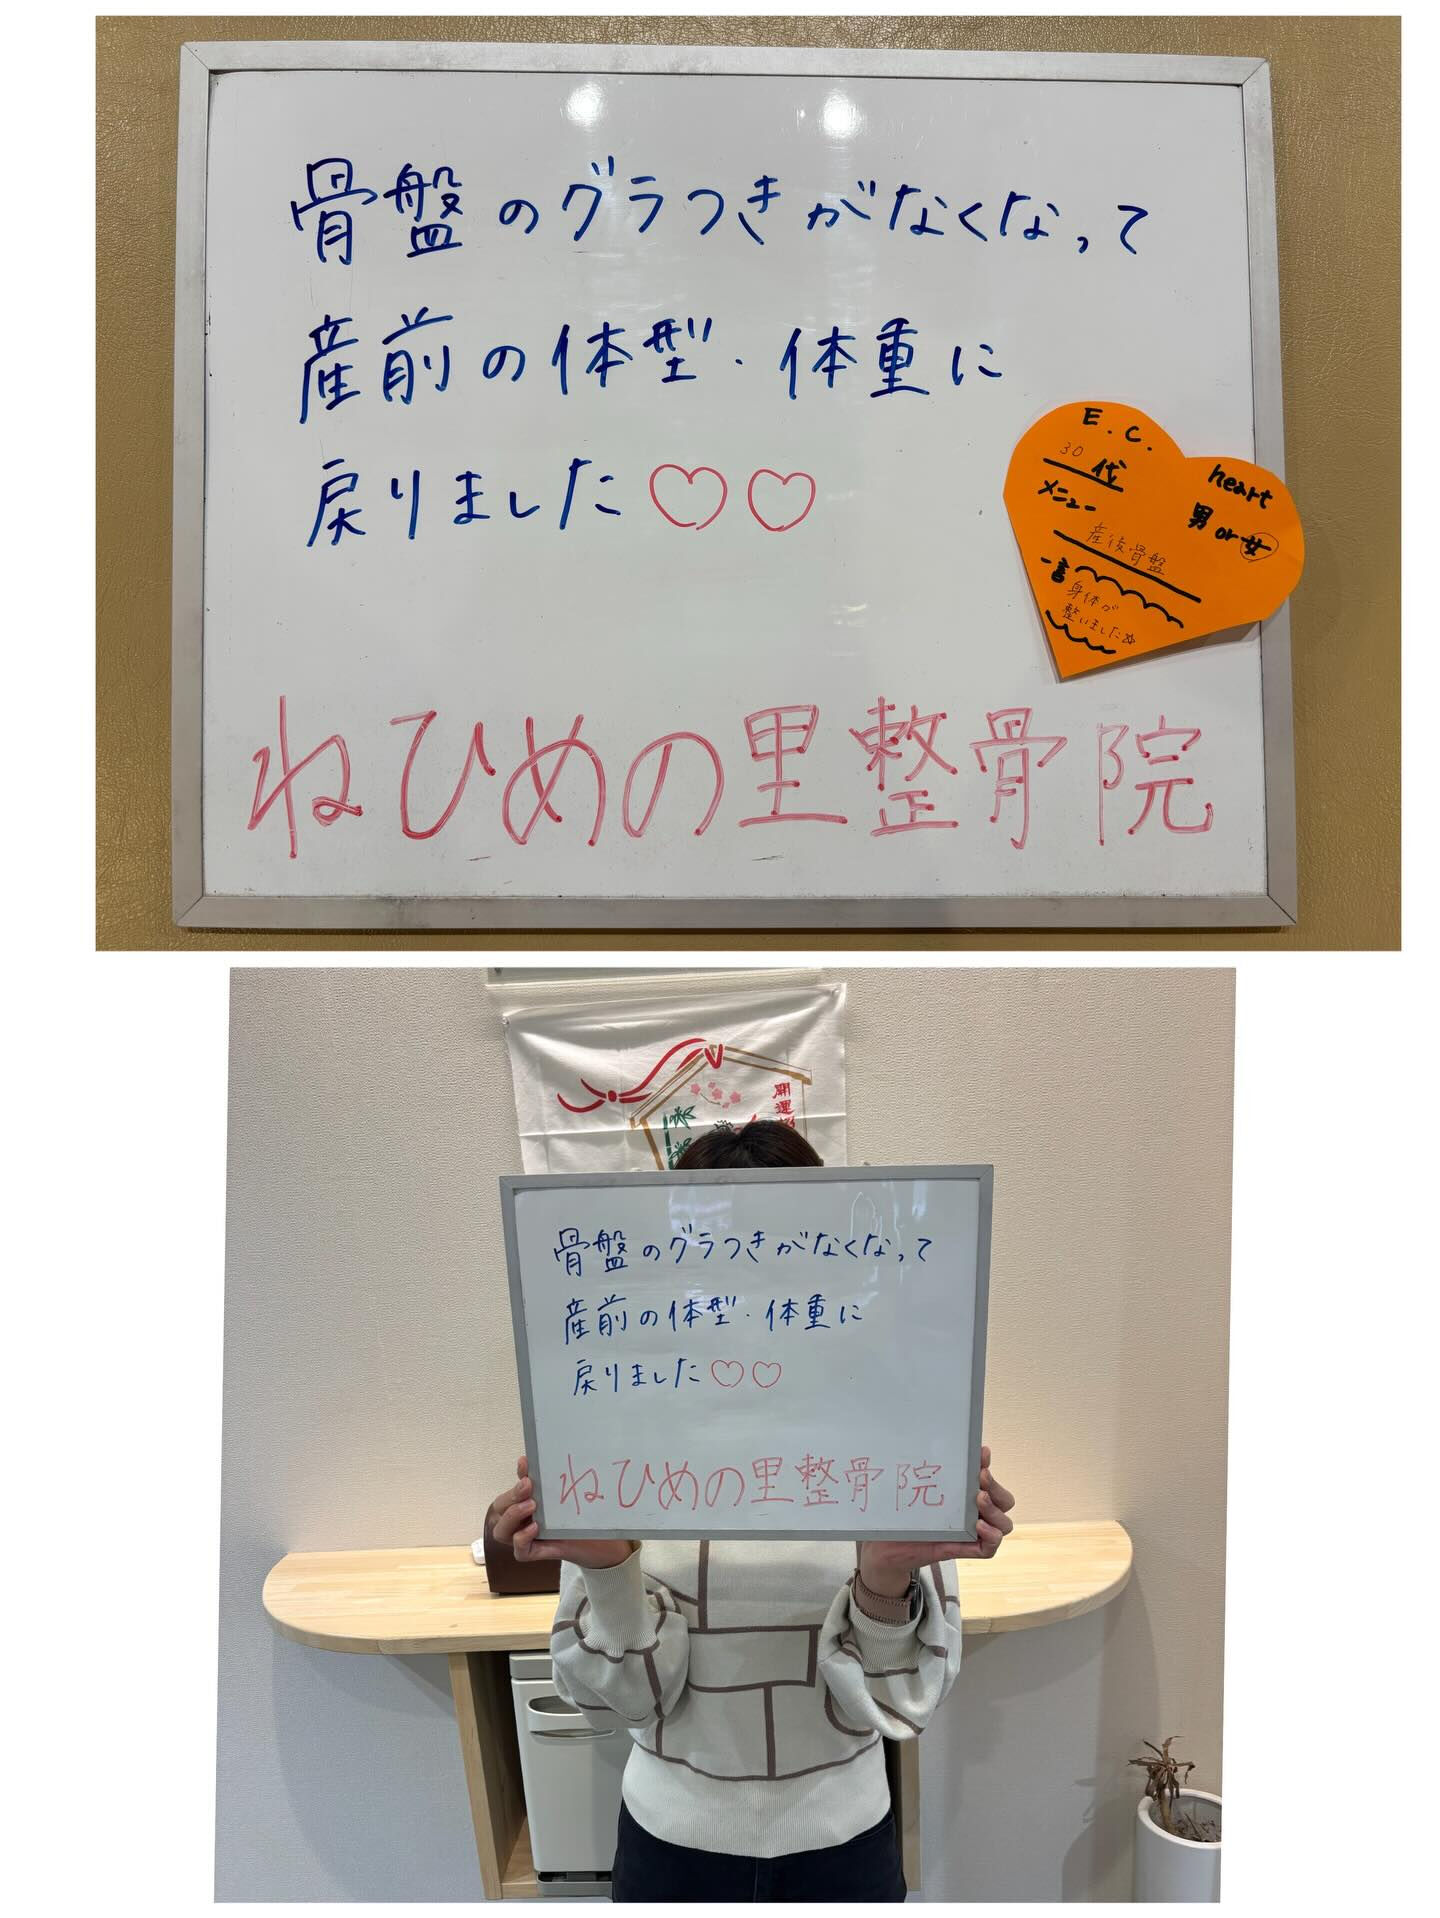 骨盤のグラつきがなくなって
産前の体型・体重に
戻りました♡♡
E.C.
30代
heart
メニュー
男or女
産後骨盤
一言
身体が
整いました☆
ねひめの里整骨院
開運
骨盤のグラつきがなくなって
産前の体型・体重に
戻りました♡♡
ねひめの里整骨院